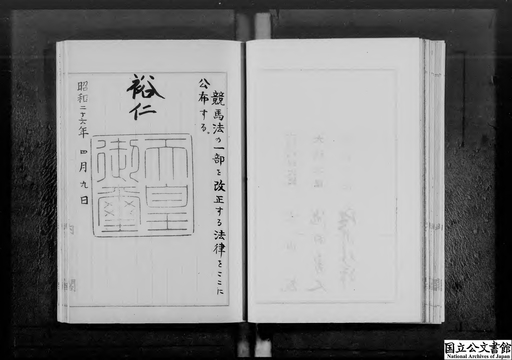 競馬法の一部を改正する法律をここに
公布する。
裕仁
天皇
御璽
昭和二十六年四月九日
国立公文書館
National Archives of Japan